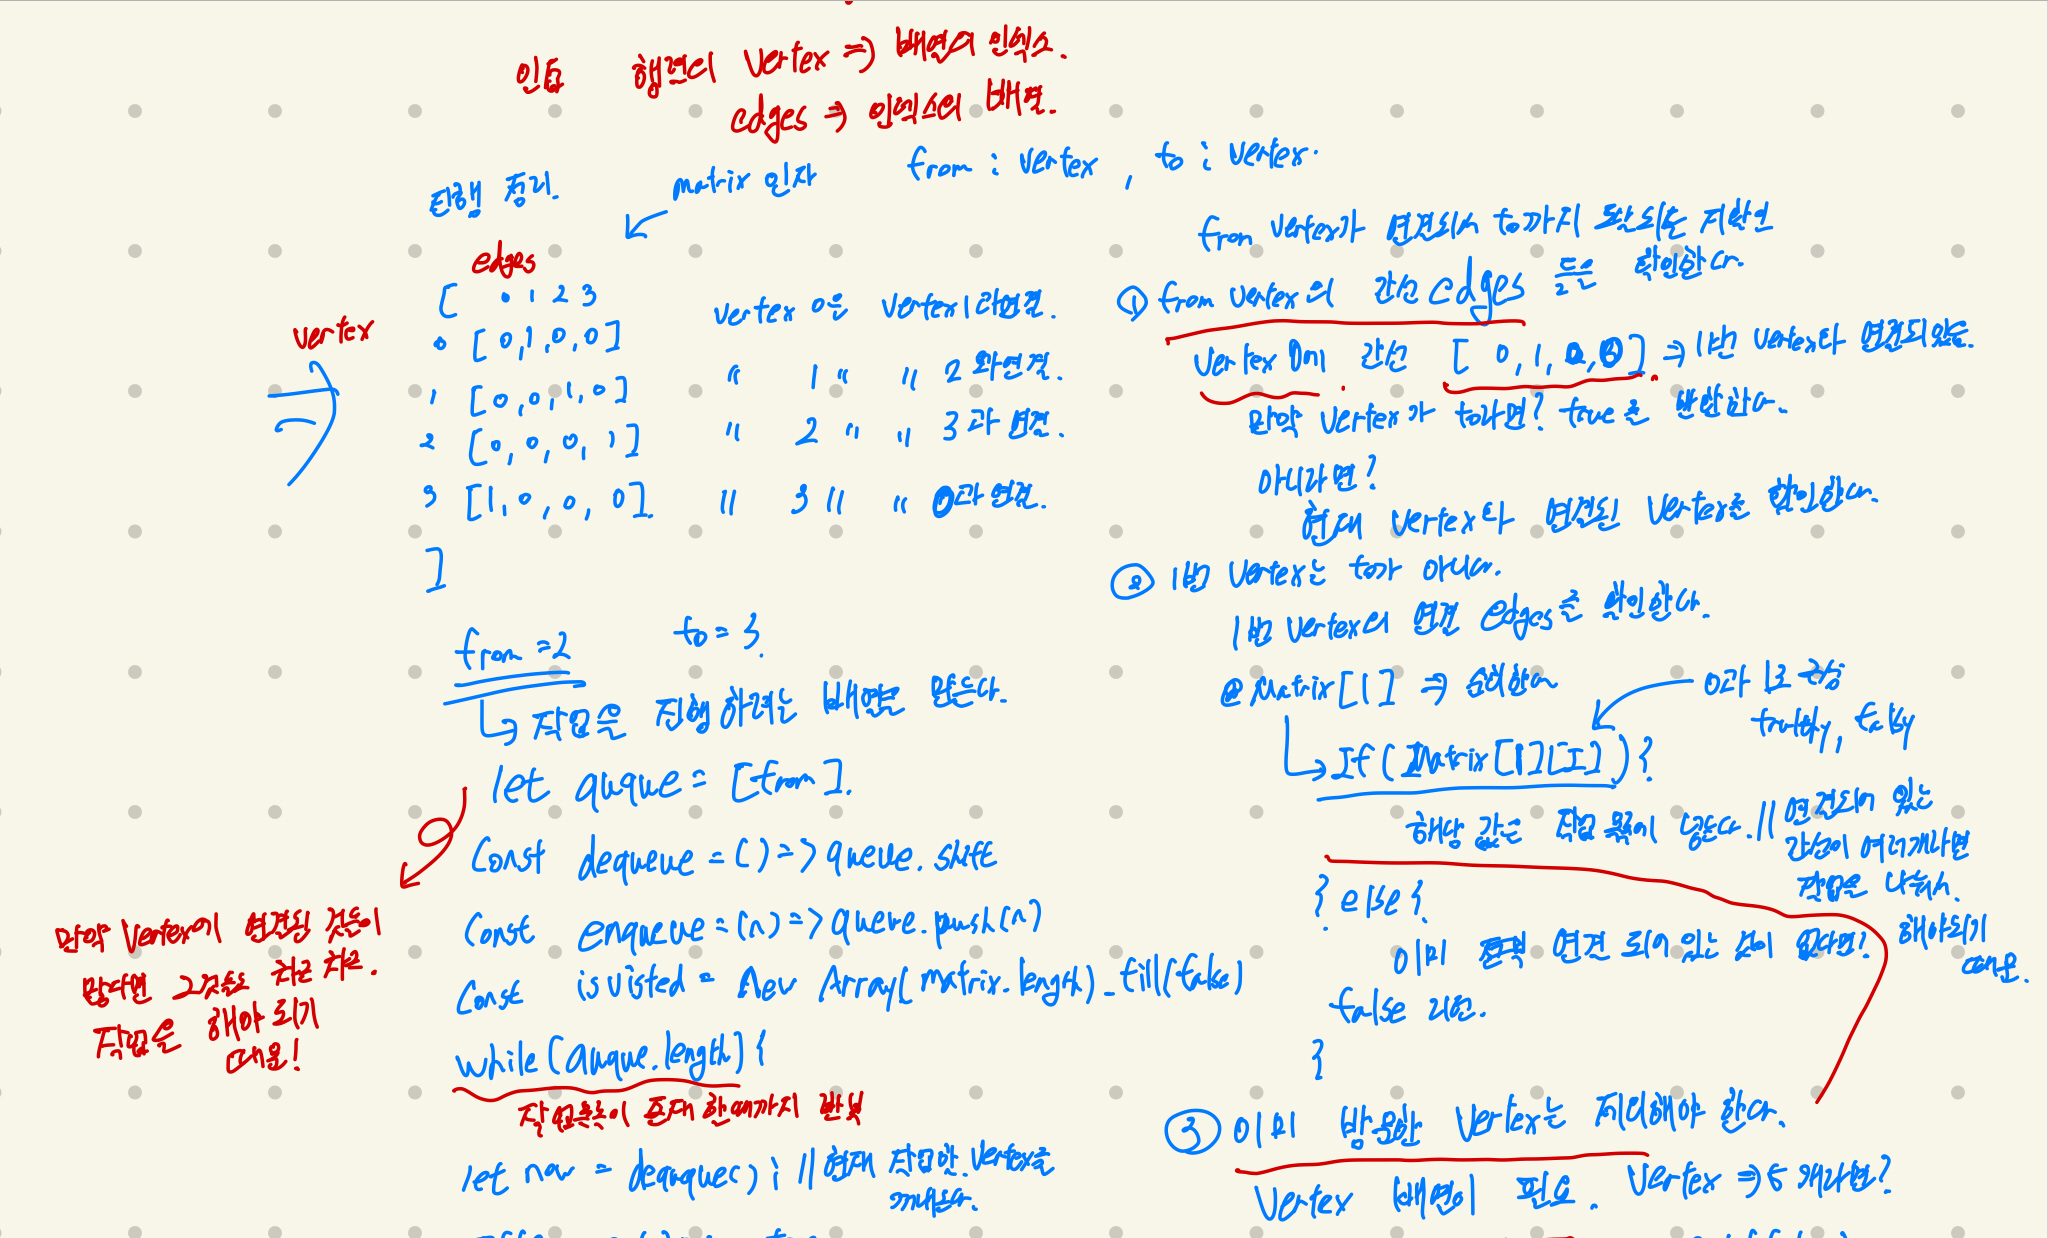 인접 행렬의 Vertex => 배열의 인덱스.
edges => 인덱스의 배열.
진행 정리.
matrix 인자
from : vertex , to : vertex.
edges
vertex
[ 0 1 2 3
0 [0,1,0,0] vertex 0은 vertex 1과 연결.
1 [0,0,1,0] " 1 " " 2와 연결.
2 [0,0,0,1] " 2 " " 3과 연결.
3 [1,0,0,0] " 3 " " 0과 연결.
]
from = 2 to = 3.
작업을 진행하려는 배열을 만든다.
let quque = [from].
만약 Vertex에 연결된 것들이
많다면 그것들도 차근 차근.
작업을 해야 되기
때문!
Const dequeue = () => queue.shift
Const enqueue = (n) => queue.push(n)
Const isvisted = New Array(matrix.length).fill(false)
while(quque.length) {
작업목록이 존재 할때까지 반복
let now = dequque() ; // 현재 작업할 Vertex를
꺼낸다.
from vertex가 연결되서 to까지 도착되는 지확인
① from vertex의 간선 edges 들을 확인한다.
Vertex 0에 간선 [0,1,0,0] => 1번 vertex와 연결되있음.
만약 vertex가 to라면? true를 반환한다.
아니라면?
현재 vertex와 연결된 Vertex를 확인한다.
② 1번 Vertex는 to가 아니다.
1번 vertex의 연결 edges를 확인한다.
@ Matrix[1] => 순회한다
0과 1로 구성
truthy, falsy
If (Matrix[1][I]) {
해당 값은 작업 목록에 넣는다. // 연결되어 있는
간선이 여러개라면
작업을 나눠서.
해야되기
때문.
} else {
이미 연결 되어 있는 것이 없다면?
false 리턴.
}
③ 이미 방문한 Vertex는 제외해야 한다.
Vertex 배열이 필요. Vertex => 5개라면?